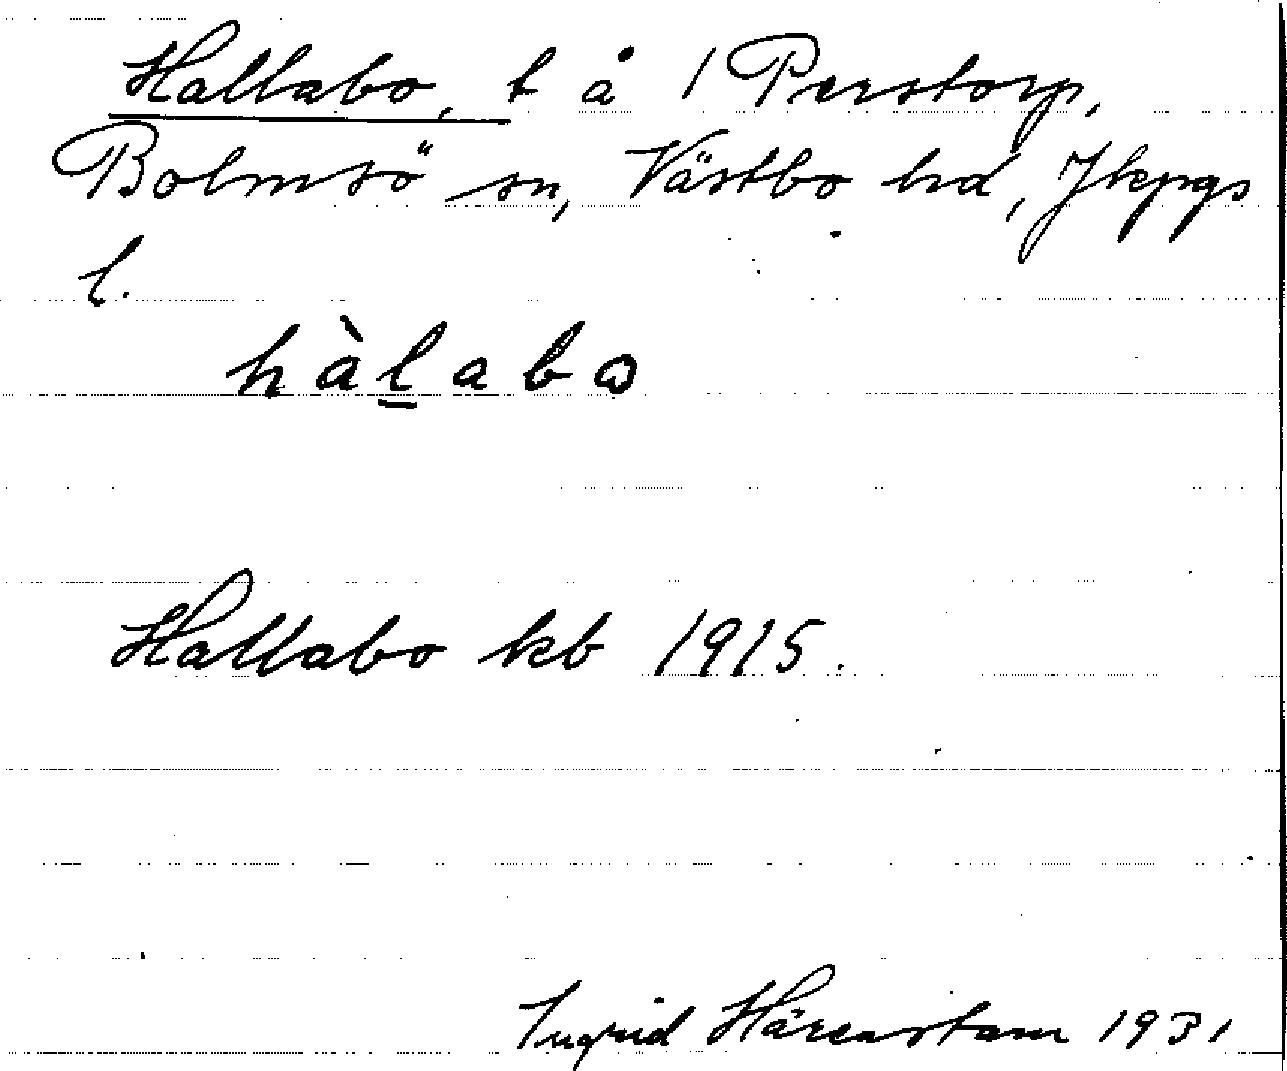 Hallabo, t å 1 Perstorp,
Bolmsö sn, Västbo hd, Jkpgs
l.
hàlabo
Hallabo kb 1915.
Ingrid Härenstam 1931